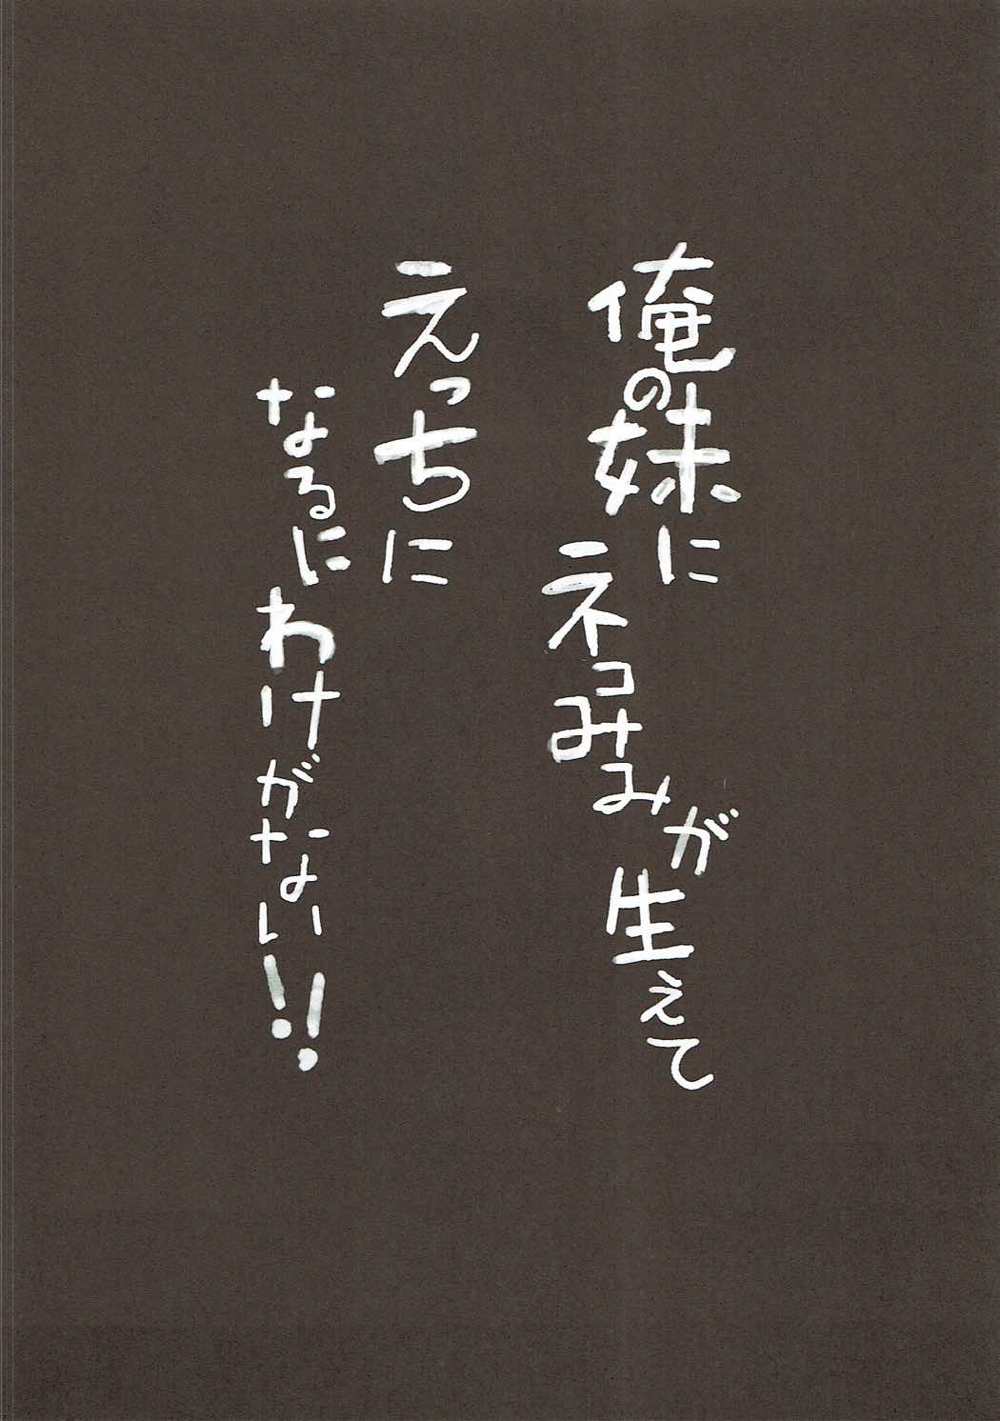 俺の妹に
ネコみみが生えて
えっちに
なるにわけがない!!